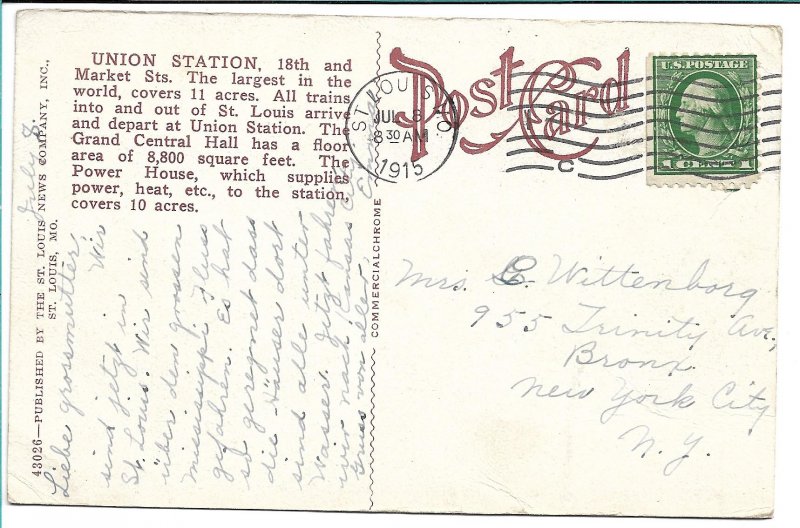 UNION STATION, 18th and
Market Sts. The largest in the
world, covers 11 acres. All trains
into and out of St. Louis arrive
and depart at Union Station. The
Grand Central Hall has a floor
area of 8,800 square feet. The
Power House, which supplies
power, heat, etc., to the station,
covers 10 acres.
43026—PUBLISHED BY THE ST. LOUIS NEWS COMPANY, INC.,
ST. LOUIS, MO.
COMMERCIALCHROME
Post Card
ST. LOUIS, MO.
JUL 8
8 30 AM
1915
C
U.S. POSTAGE
1 CENT 1
July 8.
Liebe grossmutter, Wir
sind jetzt in
St. Louis. Wir sind
über den grossen
Mississippi Fluss
gefahren. Es hat
so geregnet dass
die Häuser dort
sind alle unter
Wasser. Jetzt fahren
wir nach Kansas City
Gruss von allen
Mrs. C. Wittenborg
955 Trinity Ave,
Bronx
New York City
N. Y.